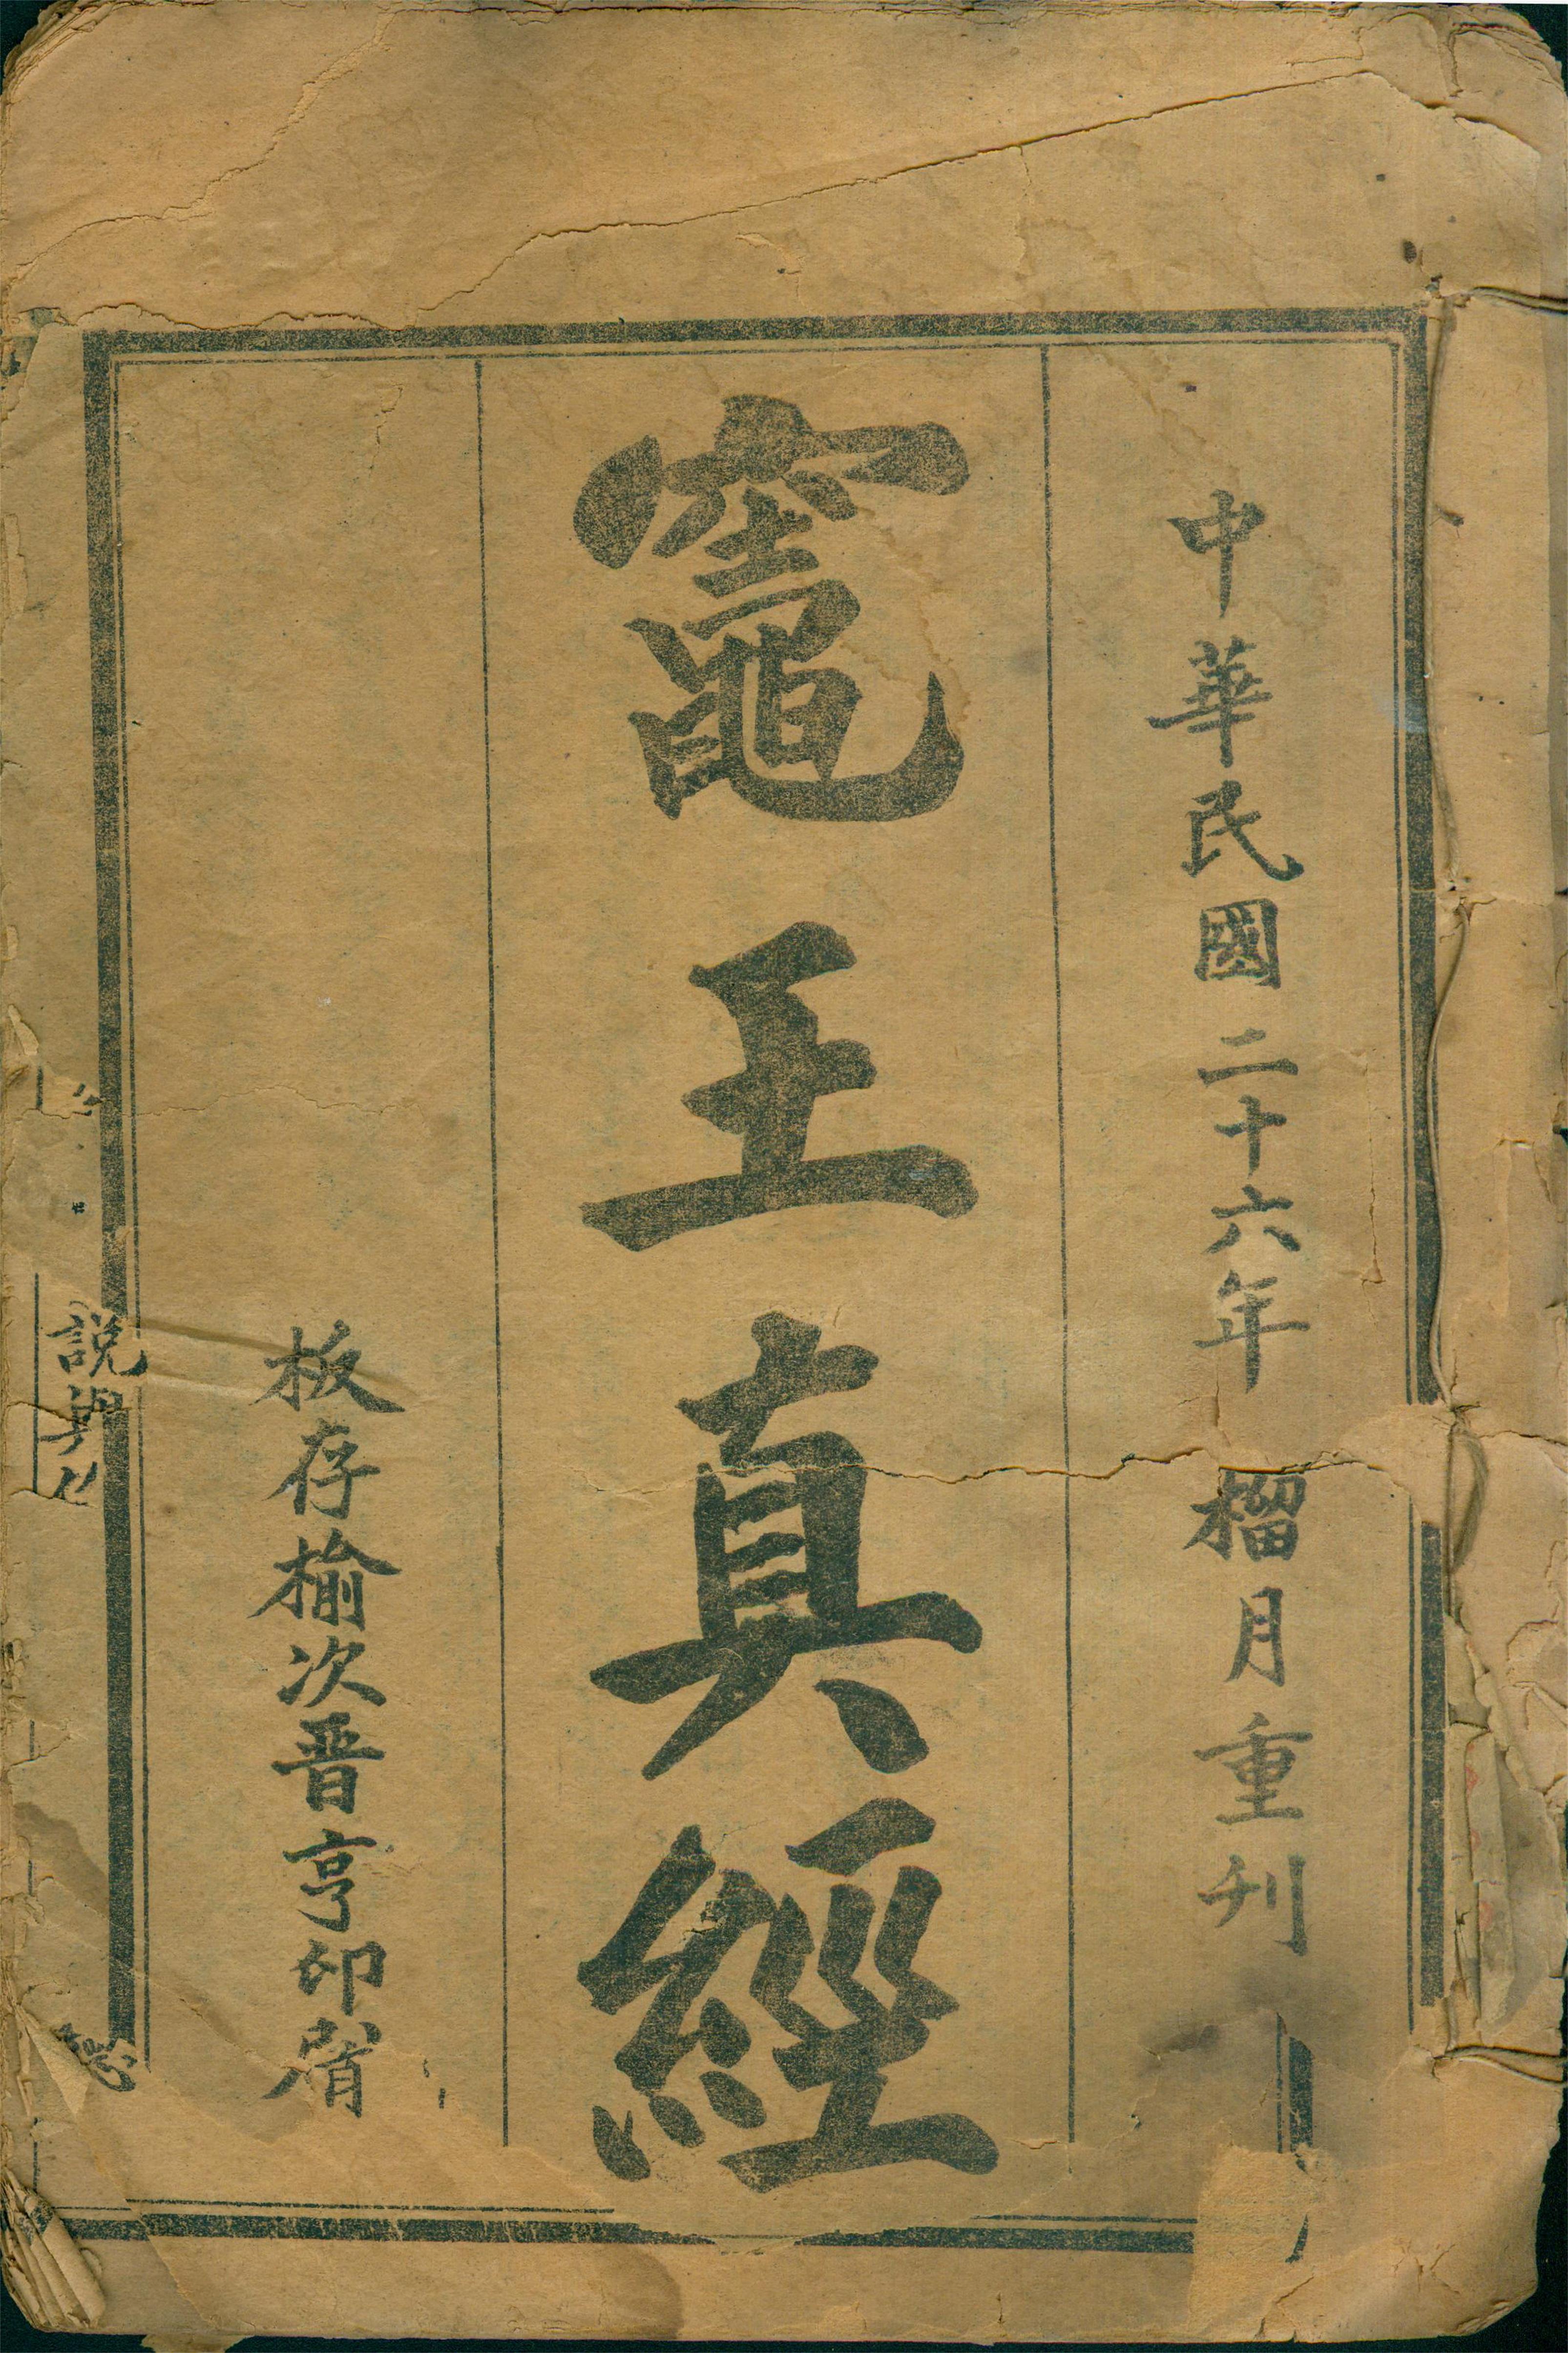 中華民國二十六年榴月重刊
竈王真經
板存榆次晋亨印
說